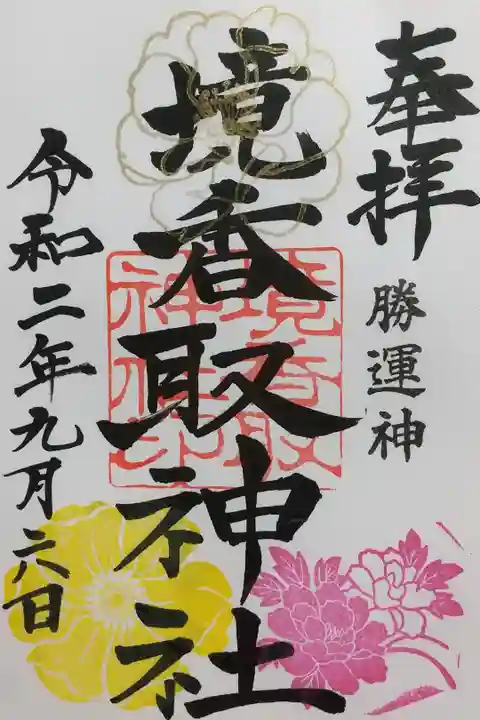 奉拝
勝運神
境香取神社
境香取
神社印
令和二年九月六日